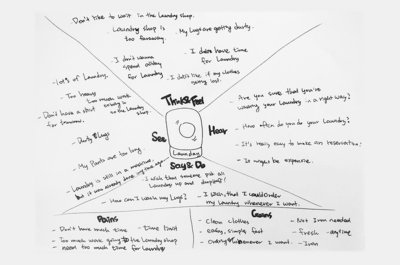 Don't like to wait in the laundry shop.
Laundry shop is
too faraway.
My Lugs are getting dusty.
I don't wanna
spend money
for laundry
I didn't have time
for laundry
I don't like if my clothes
going lost.
Think & Feel
lots of laundry.
Too heavy
too much work
Don't have a shirt
for tomorrow.
in the laundry
shop.
Dusty Lugs
My Pants are too long.
Laundry is still in a machine,
but it was already done
See
Hear
Laundry
Say & Do
Are you sure that you're
washing your laundry in a right way?
How often do you do your laundry?
It's really easy to make an reservation!
It might be expensive.
I wish that someone pick all
laundry up and dropoff!
How can I wash my Lugs?
I wish that I could order
my laundry whenever I want.
Pains
Don't have much time
Time limit
Too much work going to the laundry shop
need too much time for laundry
Gains
Clean clothes
easy, simple, fast
whenever I want.
Not Iron needed
fresh
anytime
Iron